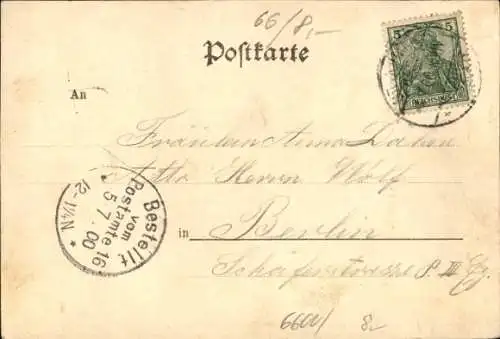 66/8,-
Postkarte
5 5
REICHSPOST
An
Fräulein Anna
Herrn Wolf
in Berlin
Schäferstrasse P. III
Bestellt
vom
Postamte 16
5 7. 00
12-1¼N
*
8,-